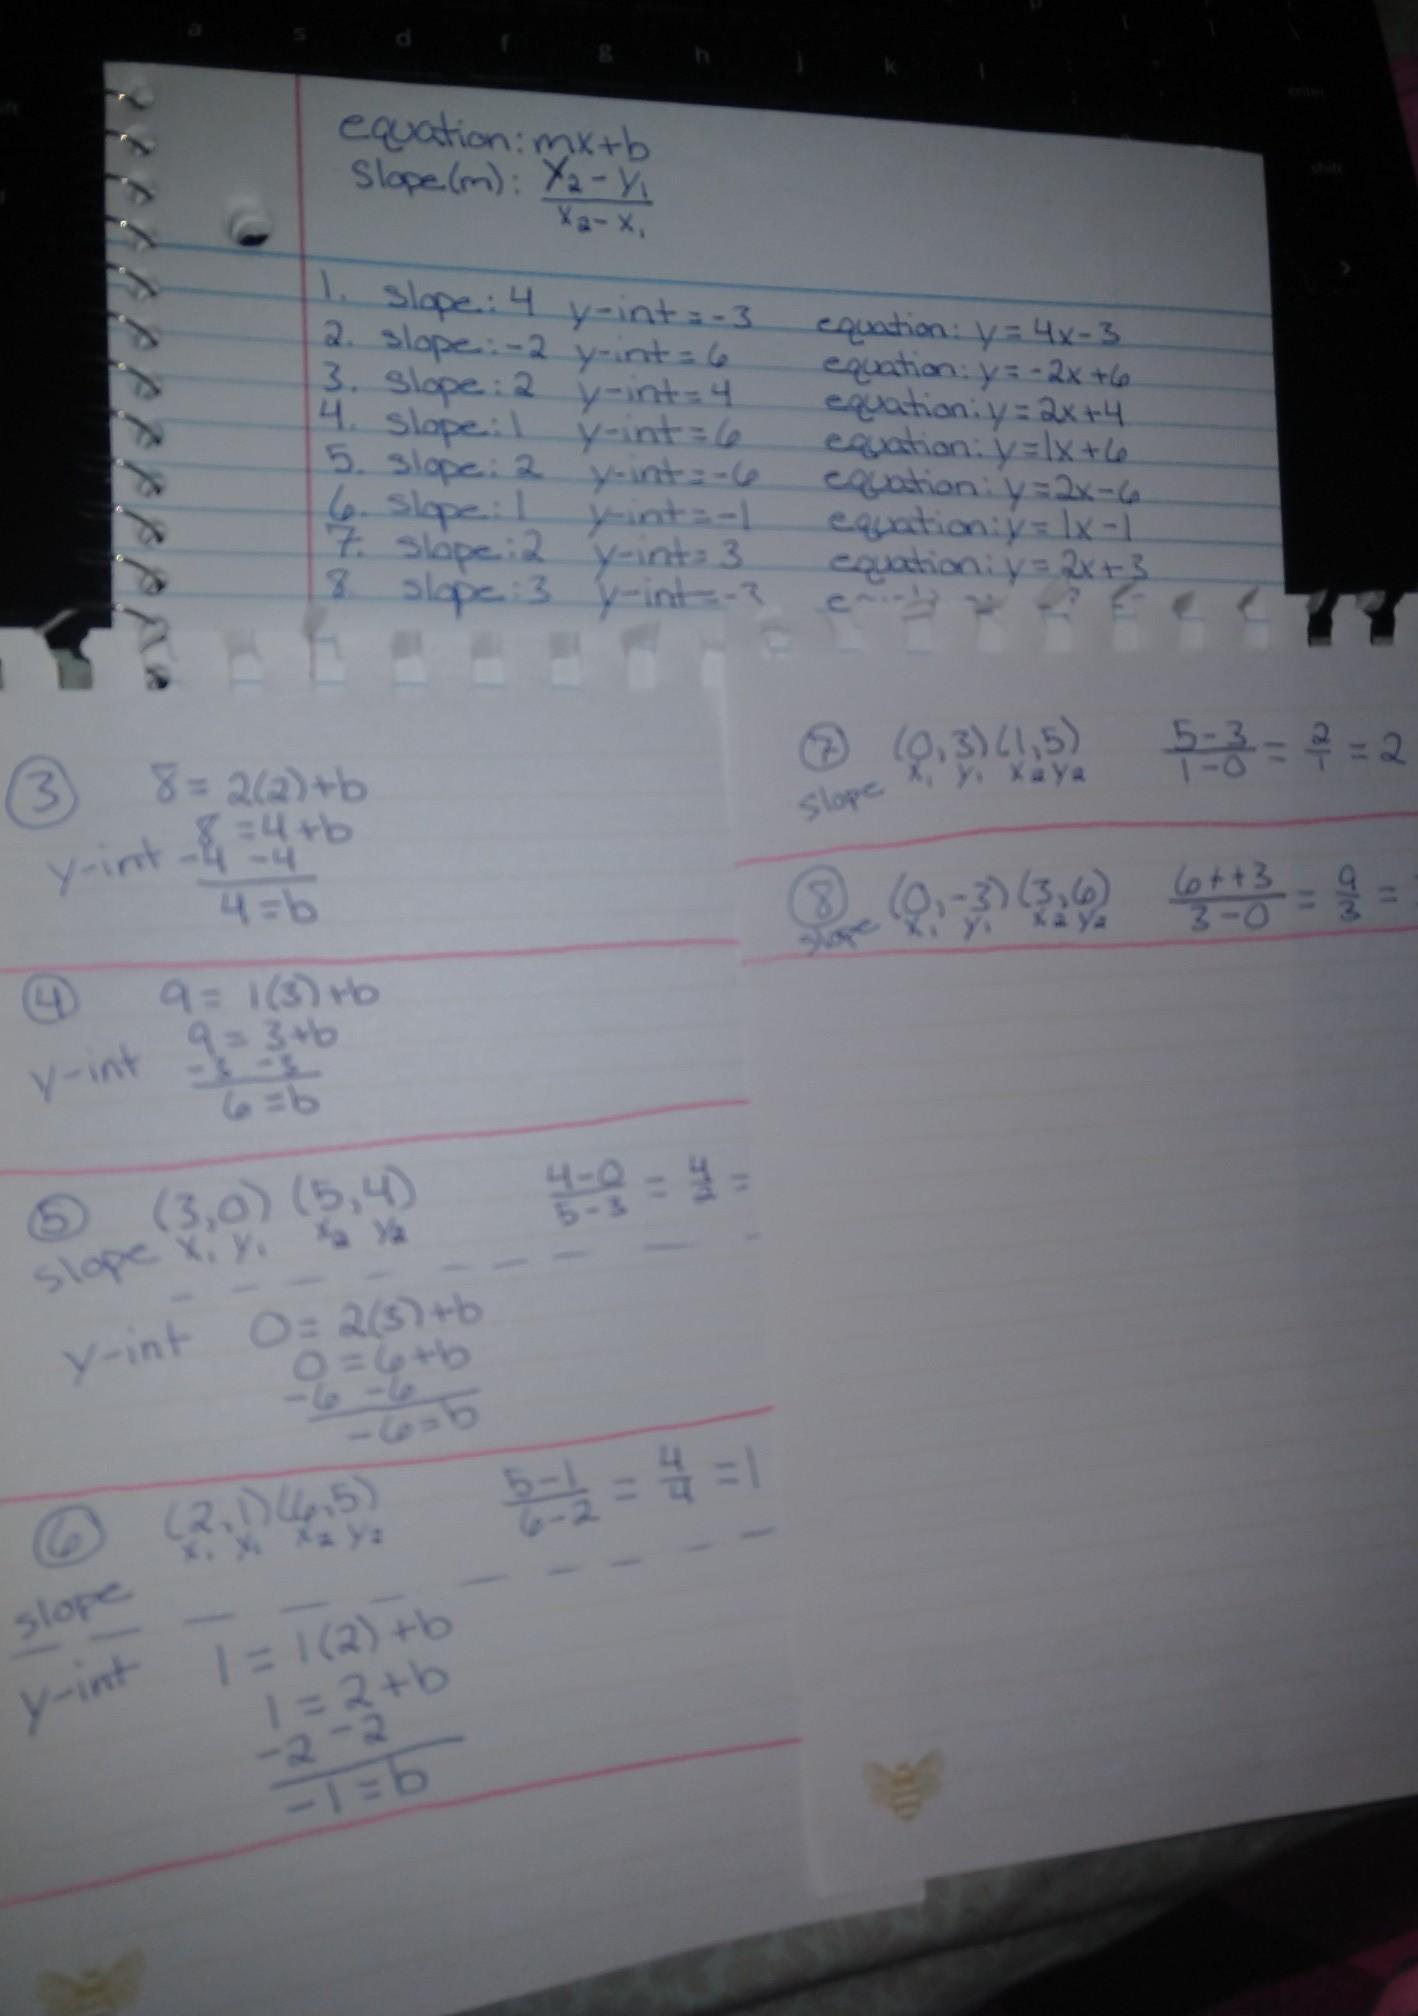 a s d f g h j k l
enter
shift
equation: mx+b
Slope(m): Y₂ - Y₁
x₂ - x₁
1. slope: 4 y-int = -3 equation: y = 4x-3
2. slope: -2 y-int = 6 equation: y = -2x+6
3. slope: 2 y-int = 4 equation: y = 2x+4
4. slope: 1 y-int = 6 equation: y = 1x+6
5. slope: 2 y-int = -6 equation: y = 2x-6
6. slope: 1 y-int = -1 equation: y = 1x-1
7. slope: 2 y-int = 3 equation: y = 2x+3
8. slope: 3 y-int = -3
3 8 = 2(2)+b
y-int 8 = 4+b
-4 -4
4 = b
4 9 = 1(3)+b
y-int 9 = 3+b
-3 -3
6 = b
5 (3,0) (5,4) 4-0/5-3 = 4/2 =
slope x₁ y₁ x₂ y₂
y-int 0 = 2(3)+b
0 = 6+b
-6 -6
-6 = b
6 (2,1) (6,5) 5-1/6-2 = 4/4 = 1
x₁ y₁ x₂ y₂
slope
y-int 1 = 1(2)+b
1 = 2+b
-2 -2
-1 = b
7 (0,3) (1,5) 5-3/1-0 = 2/1 = 2
slope x₁ y₁ x₂ y₂
8 (0,-3) (3,6) 6++3/3-0 = 9/3 =
slope x₁ y₁ x₂ y₂